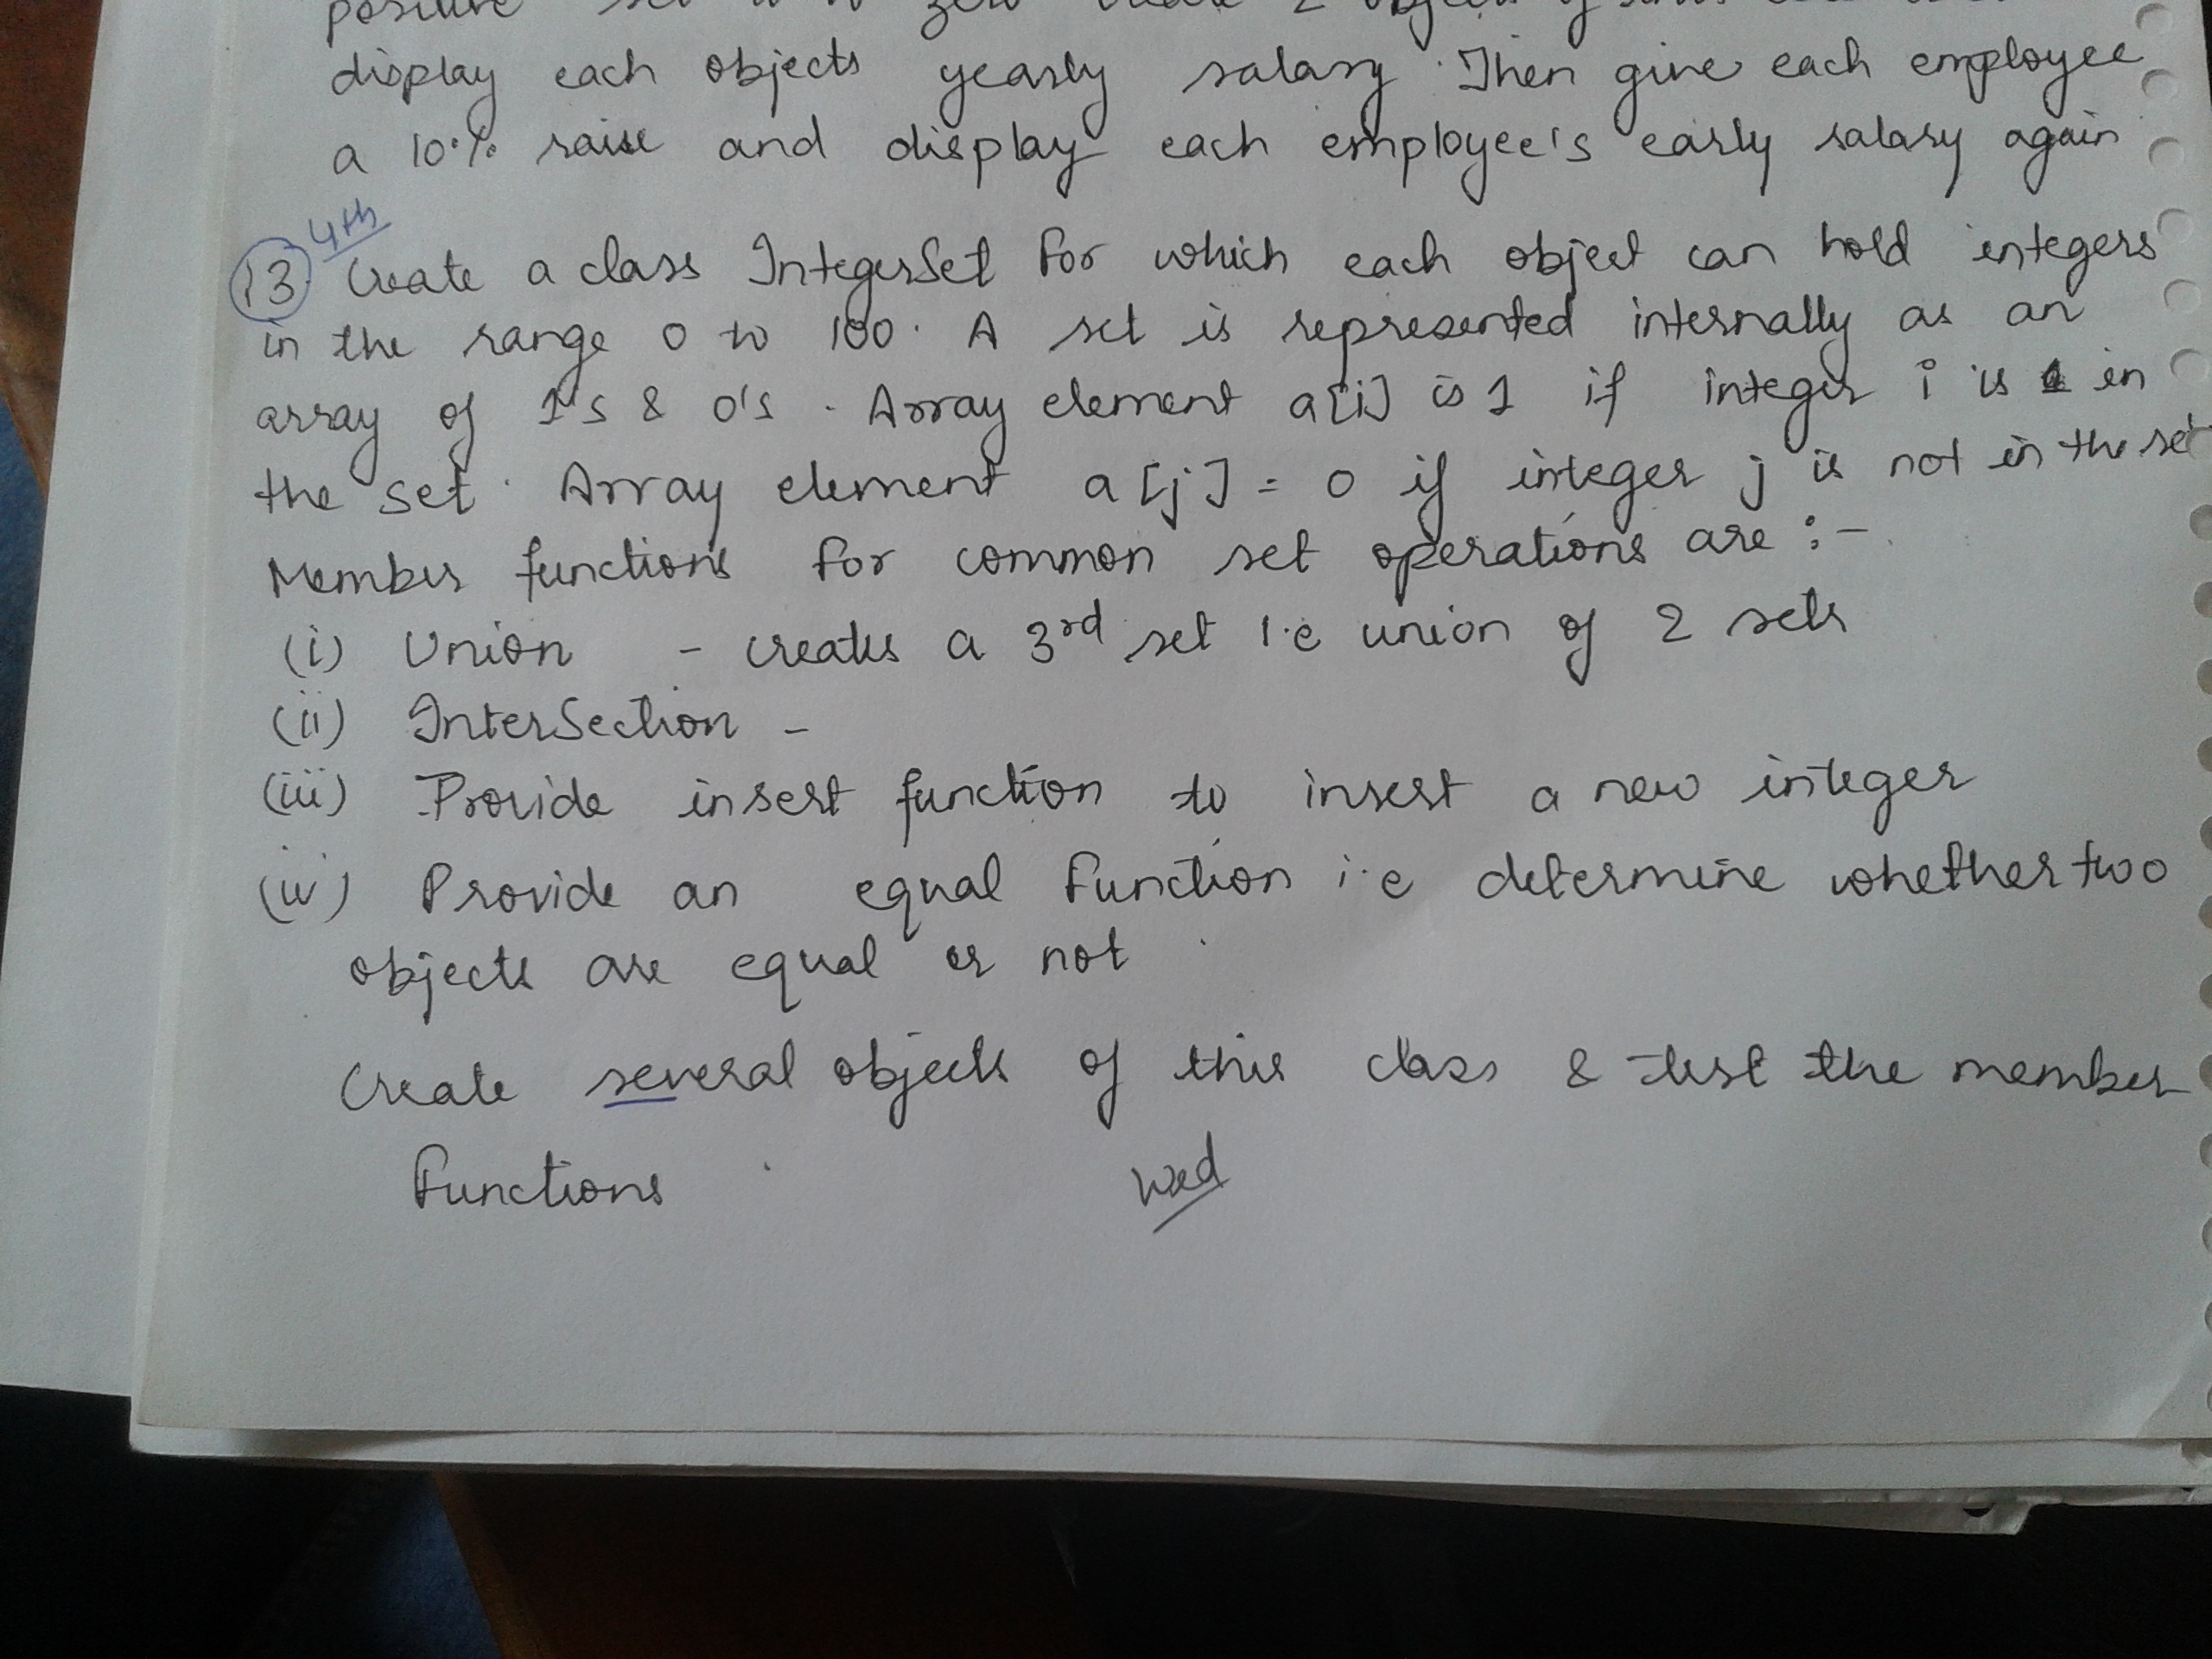 display each objects yearly salary. Then give each employee
a 10% raise and display each employee's early salary again
4th
13 Create a class IntegerSet for which each object can hold integers
in the range 0 to 100. A set is represented internally as an
array of 1's & 0's. Array element a[i] is 1 if integer i is in
the set. Array element a[j] = 0 if integer j is not in the set
Member functions for common set operations are :-
(i) Union - creates a 3rd set i.e union of 2 sets
(ii) InterSection -
(iii) Provide insert function to insert a new integer
(iv) Provide an equal function i.e determine whether two
objects are equal or not.
Create several objects of this class & test the member
functions.
Wed